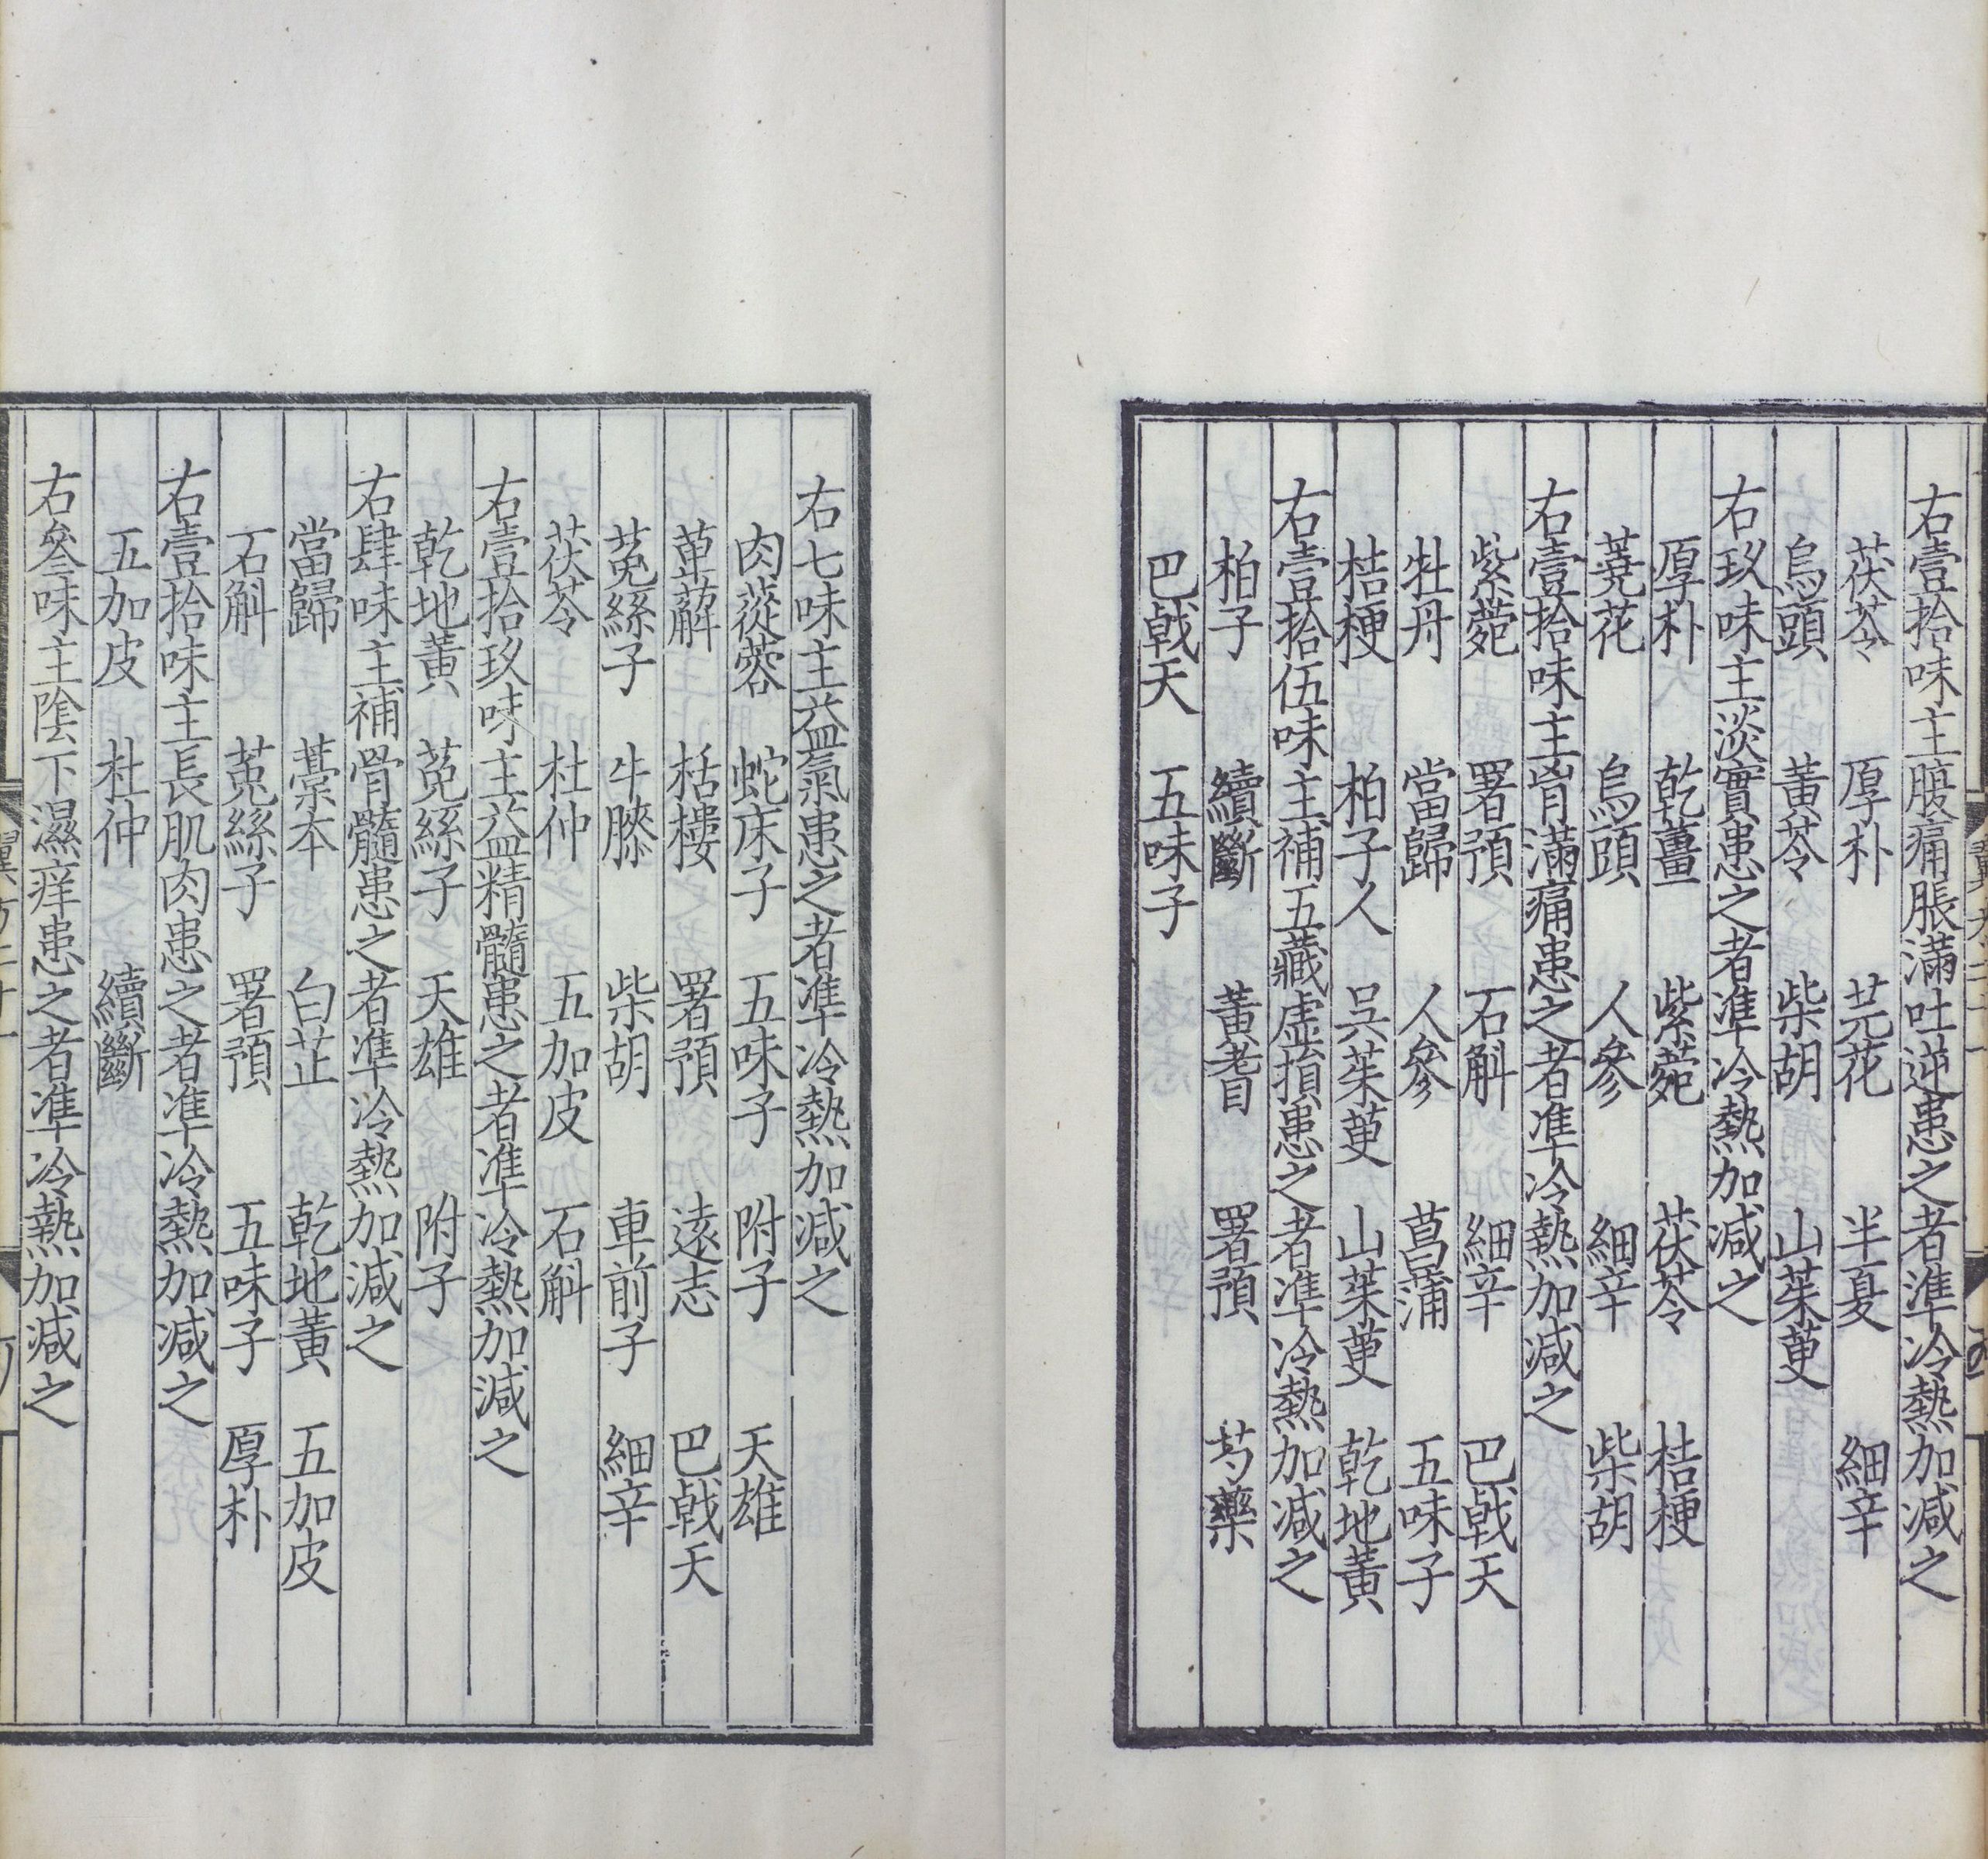 右壹拾味主腹痛脹滿吐逆患之者準冷熱加減之
茯苓　厚朴　芫花　半夏　細辛
烏頭　黃芩　柴胡　山茱萸
右玖味主淡實患之者準冷熱加減之
厚朴　乾薑　紫菀　茯苓　桔梗
蕘花　烏頭　人參　細辛　柴胡
右壹拾味主胷滿痛患之者準冷熱加減之
紫菀　署預　石斛　細辛　巴戟天
牡丹　當歸　人參　菖蒲　五味子
桔梗　柏子人　吳茱萸　山茱萸　乾地黃
右壹拾伍味主補五藏虛損患之者準冷熱加減之
柏子　續斷　黃耆　署預　芍藥
巴戟天　五味子
右七味主益氣患之者準冷熱加減之
肉蓯蓉　蛇床子　五味子　附子　天雄
萆薢　栝樓　署預　遠志　巴戟天
菟絲子　牛膝　柴胡　車前子　細辛
茯苓　杜仲　五加皮　石斛
右壹拾玖味主益精髓患之者準冷熱加減之
乾地黃　菟絲子　天雄　附子
右肆味主補骨髓患之者準冷熱加減之
當歸　藁本　白芷　乾地黃　五加皮
石斛　菟絲子　署預　五味子　厚朴
右壹拾味主長肌肉患之者準冷熱加減之
五加皮　杜仲　續斷
右叄味主陰下濕痒患之者準冷熱加減之